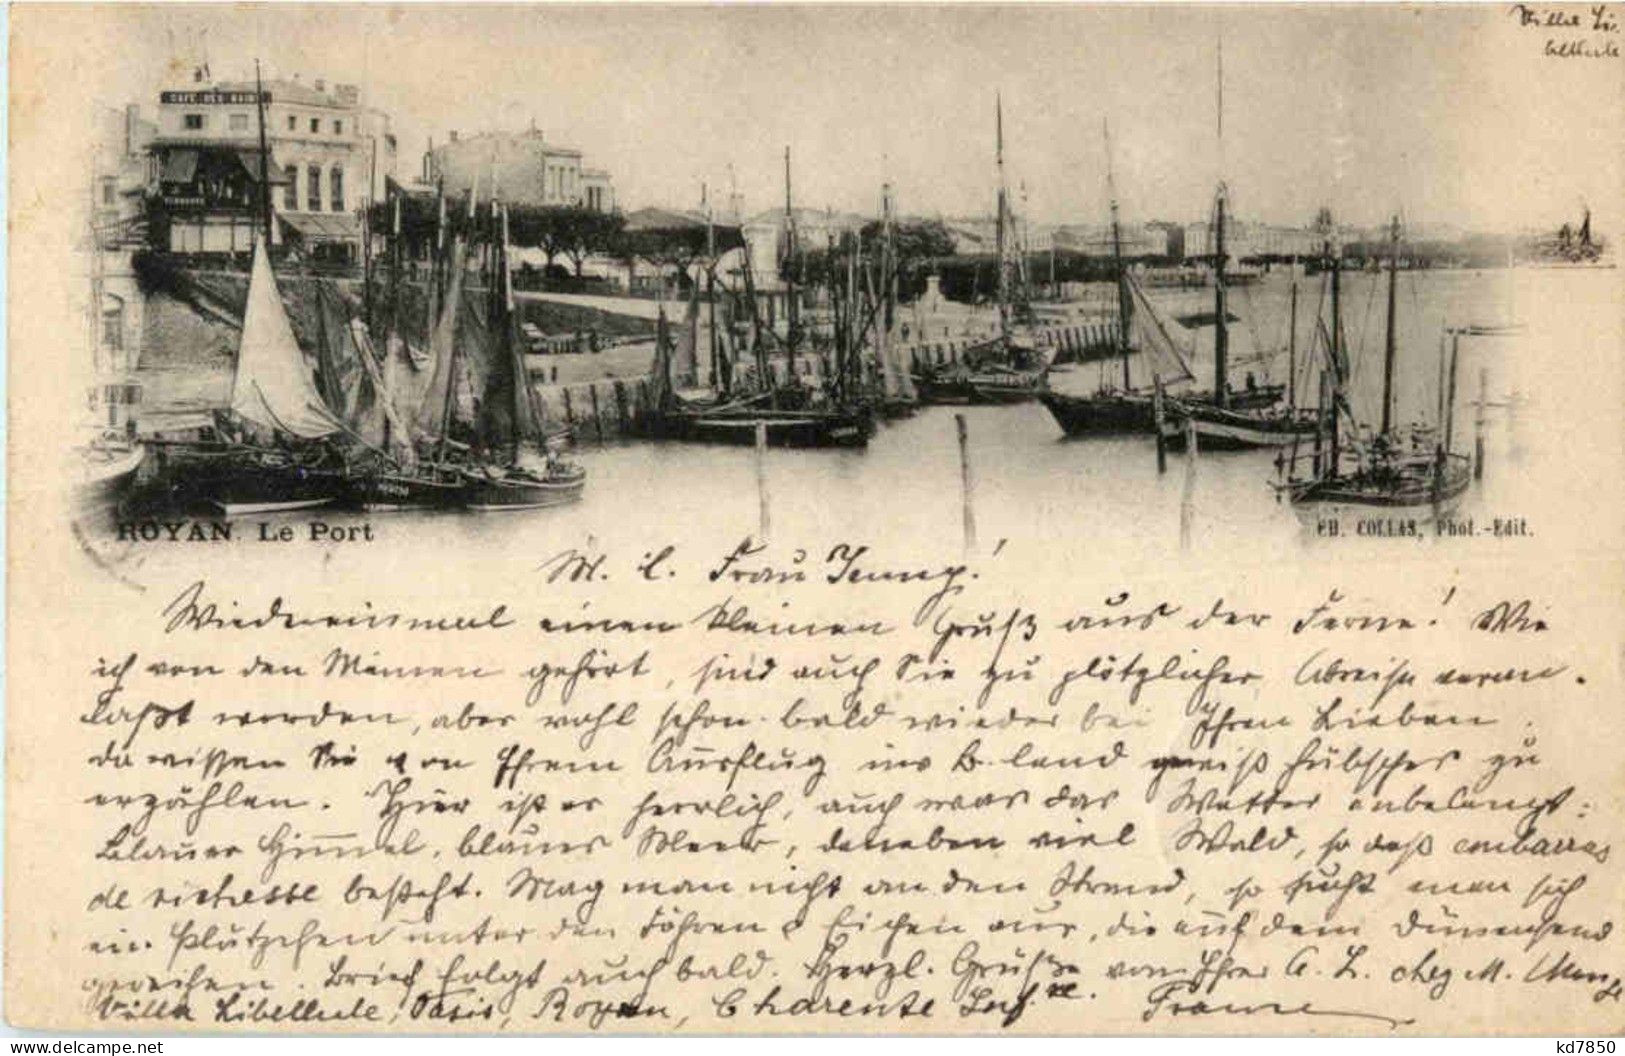 Villa Li-
bellule
CAFÉ DES BAINS
ROYAN. Le Port
CH. COLLAS, Phot.-Edit.
M. l. Frau Jenny!
Wiedereinmal einen kleinen Gruß aus der Ferne! Wie
ich von den Meinen gehört, sind auch Sie zu plötzlicher Abreise veran-
laßt worden, aber wohl schon bald wieder bei Ihren Lieben.
da wissen Sie von Ihrem Ausflug ins B. land gewiß hübsches zu
erzählen. Hier ist es herrlich, auch was das Wetter anbelangt:
blauer Himmel, blaues Meer, daneben viel Wald, so daß embarras
de richesse besteht. Mag man nicht an den Strand, so sucht man sich
ein Plätzchen unter den Föhren & Eichen aus, die auf dem Dünensand
gereihen. Brief folgt auch bald. Herzl. Grüße von Ihrer A. L. chez M.
Villa Libellule, Oasis, Royan, Charente Inf.re. France
kd7850